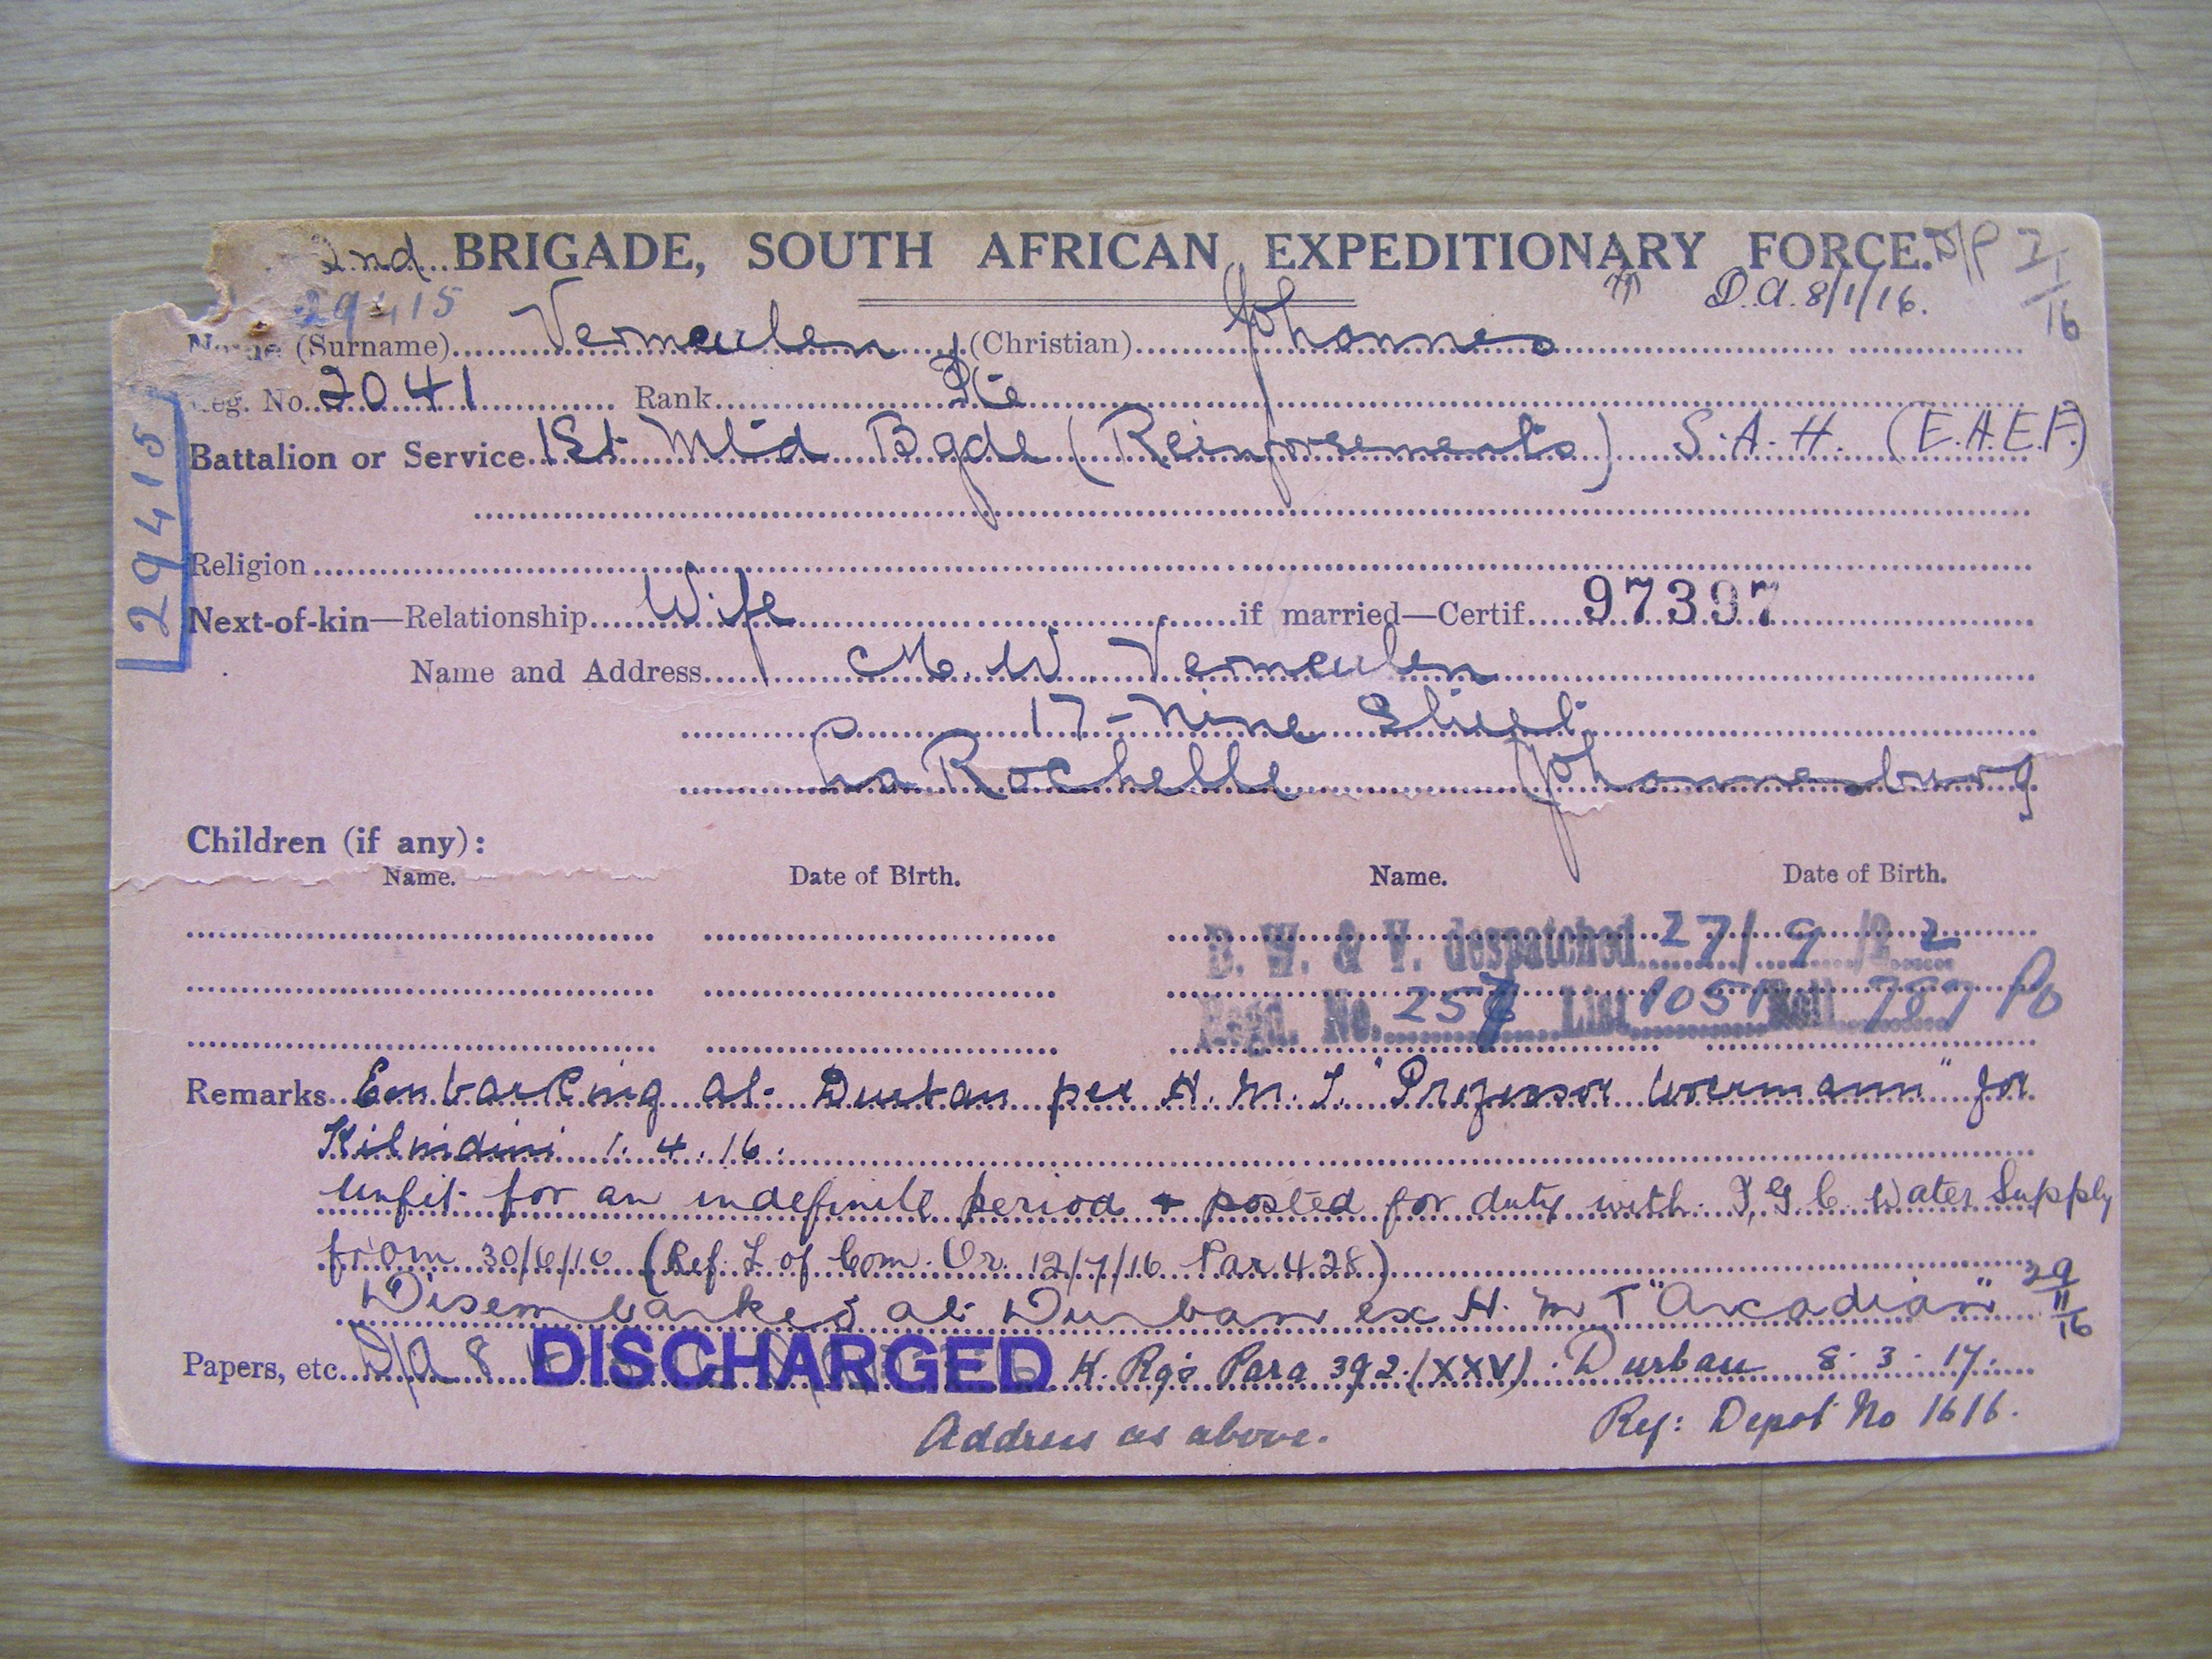 2nd BRIGADE, SOUTH AFRICAN EXPEDITIONARY FORCE. D/P 2/1/16
29415 D.A. 8/1/16.
Name (Surname) Vermeulen (Christian) Johannes
Reg. No. 2041 Rank Pte
Battalion or Service 1st Mtd Bgde (Reinforsements) S.A.H. (E.A.E.F.)
29415
Religion
Next-of-kin—Relationship Wife if married—Certif. 97397
Name and Address M. W. Vermeulen
17 - Nine Street
La Rochelle Johannesburg
Children (if any):
Name. Date of Birth. Name. Date of Birth.
B. W. & V. despatched 27/9/22
Regd. No. 257 List 1051 Roll
Remarks Embarking at Durban per H.M.T. "Professor Woermann" for
Kilindini 1.4.16.
Unfit for an indefinite period & posted for duty with Water Supply
from 30/6/16 (Ref. L of Com. Or. 12/7/16 Par 428)
Disembarked at Durban ex H.M.T "Arcadian" 29/11/16
Papers, etc. D/A 8 DISCHARGED K. Rgs Para 392 (XXV). Durban 8.3.17.
Address as above. Ref: Depot No 1616.